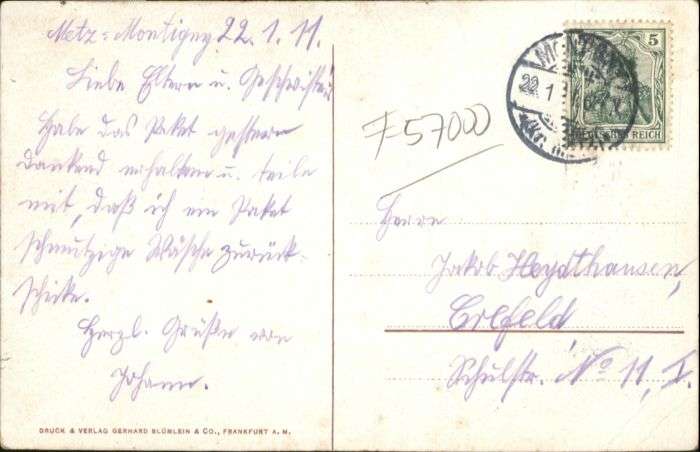 Metz-Montigny 22.1.11.
Liebe Eltern u. Geschwister,
Habe das Paket gestern
dankend erhalten u. teile
mit, daß ich ein Paket
schmutzige Wäsche zurück-
schicke.
Herzl. Grüße von
Johann.
DRUCK & VERLAG GERHARD BLÜMLEIN & CO., FRANKFURT A. M.
F 57000
22 1
5
DEUTSCHES REICH
Herrn
Jakob Heydthausen,
Crefeld
Schulstr. No 11, I.